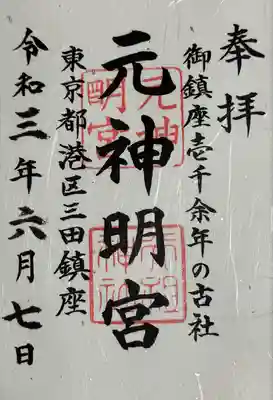 奉拝
御鎮座壱千余年の古社
元神明宮
東京都港区三田鎮座
令和三年六月七日
元神明宮